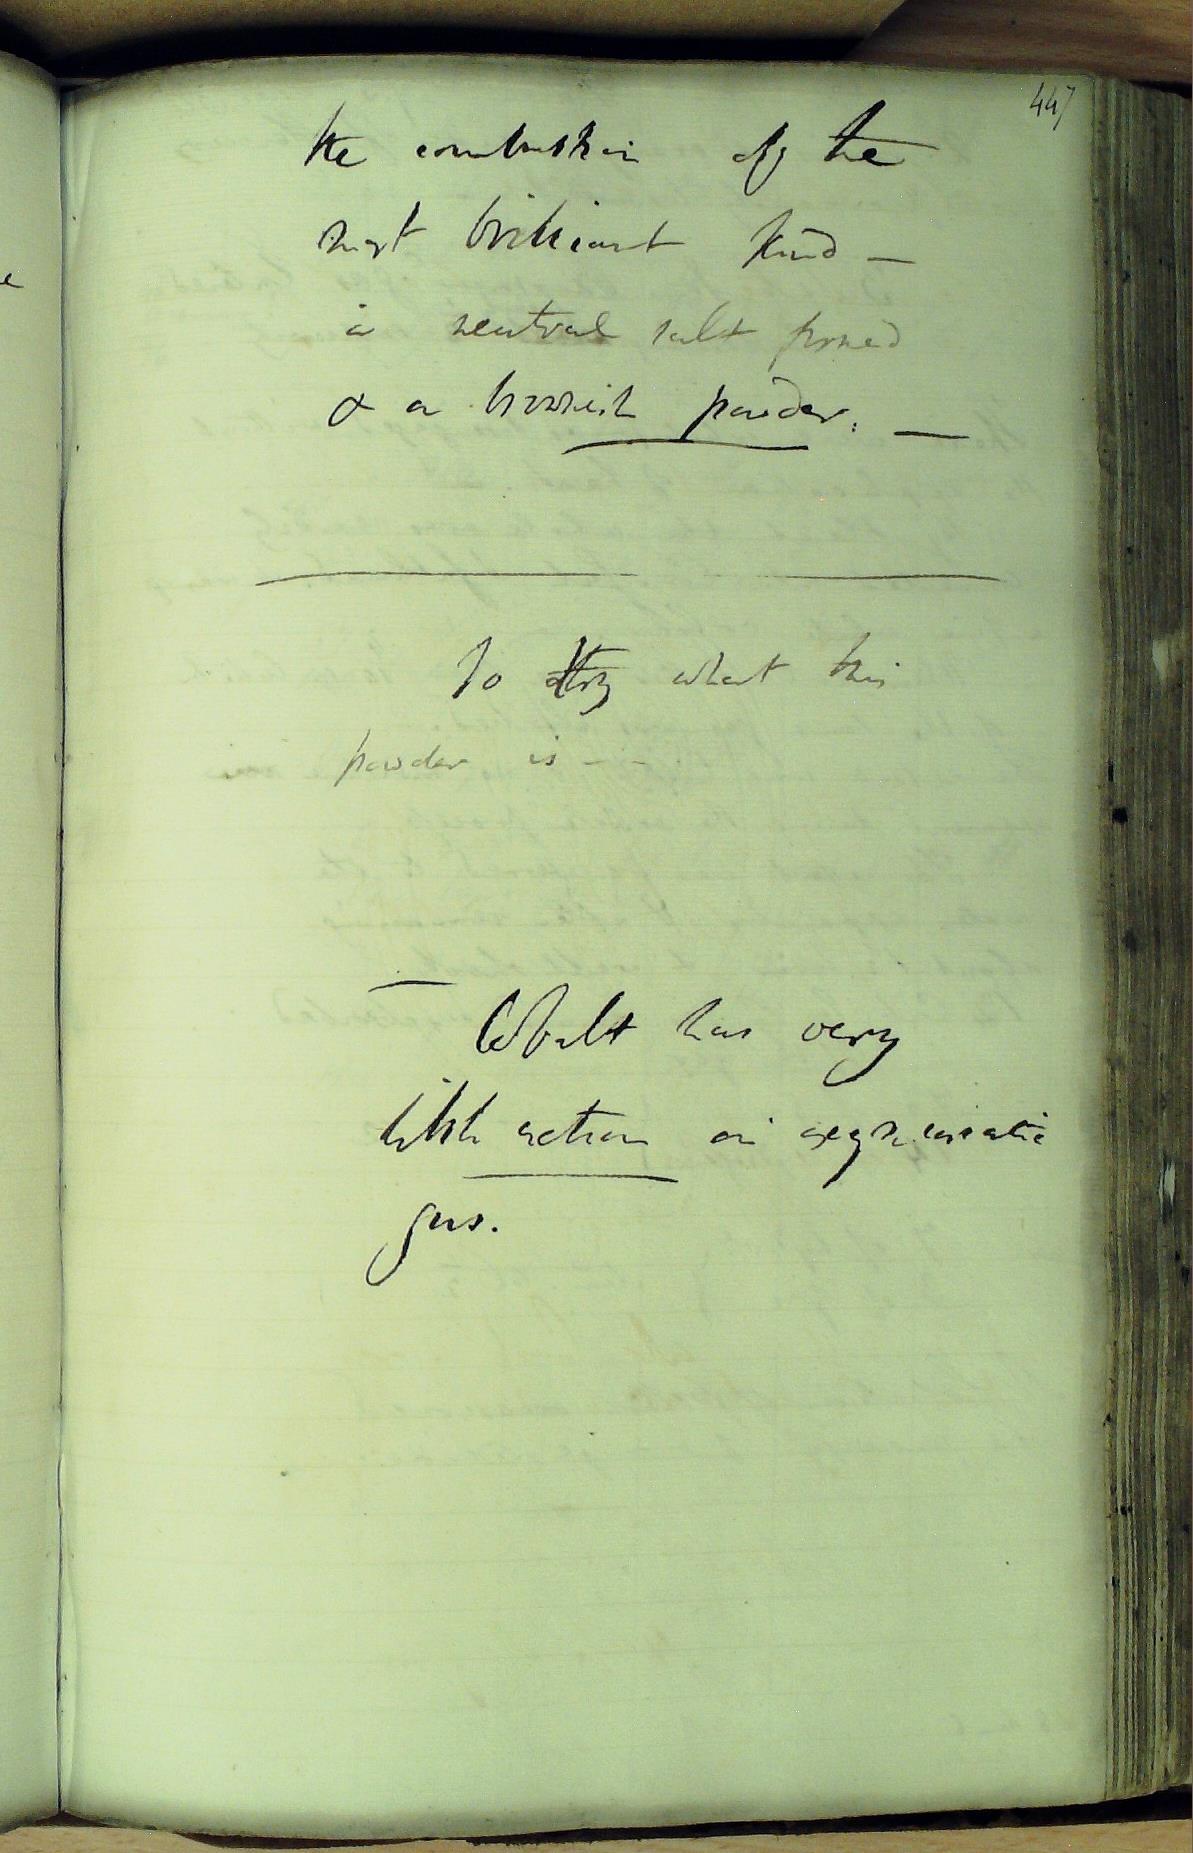 447
the combustion of the
most brilliant kind —
a neutral salt formed
& a brownish powder. —
To try what this
powder is - -
— Cobalt has very
little action on oxymuriatic
gas.